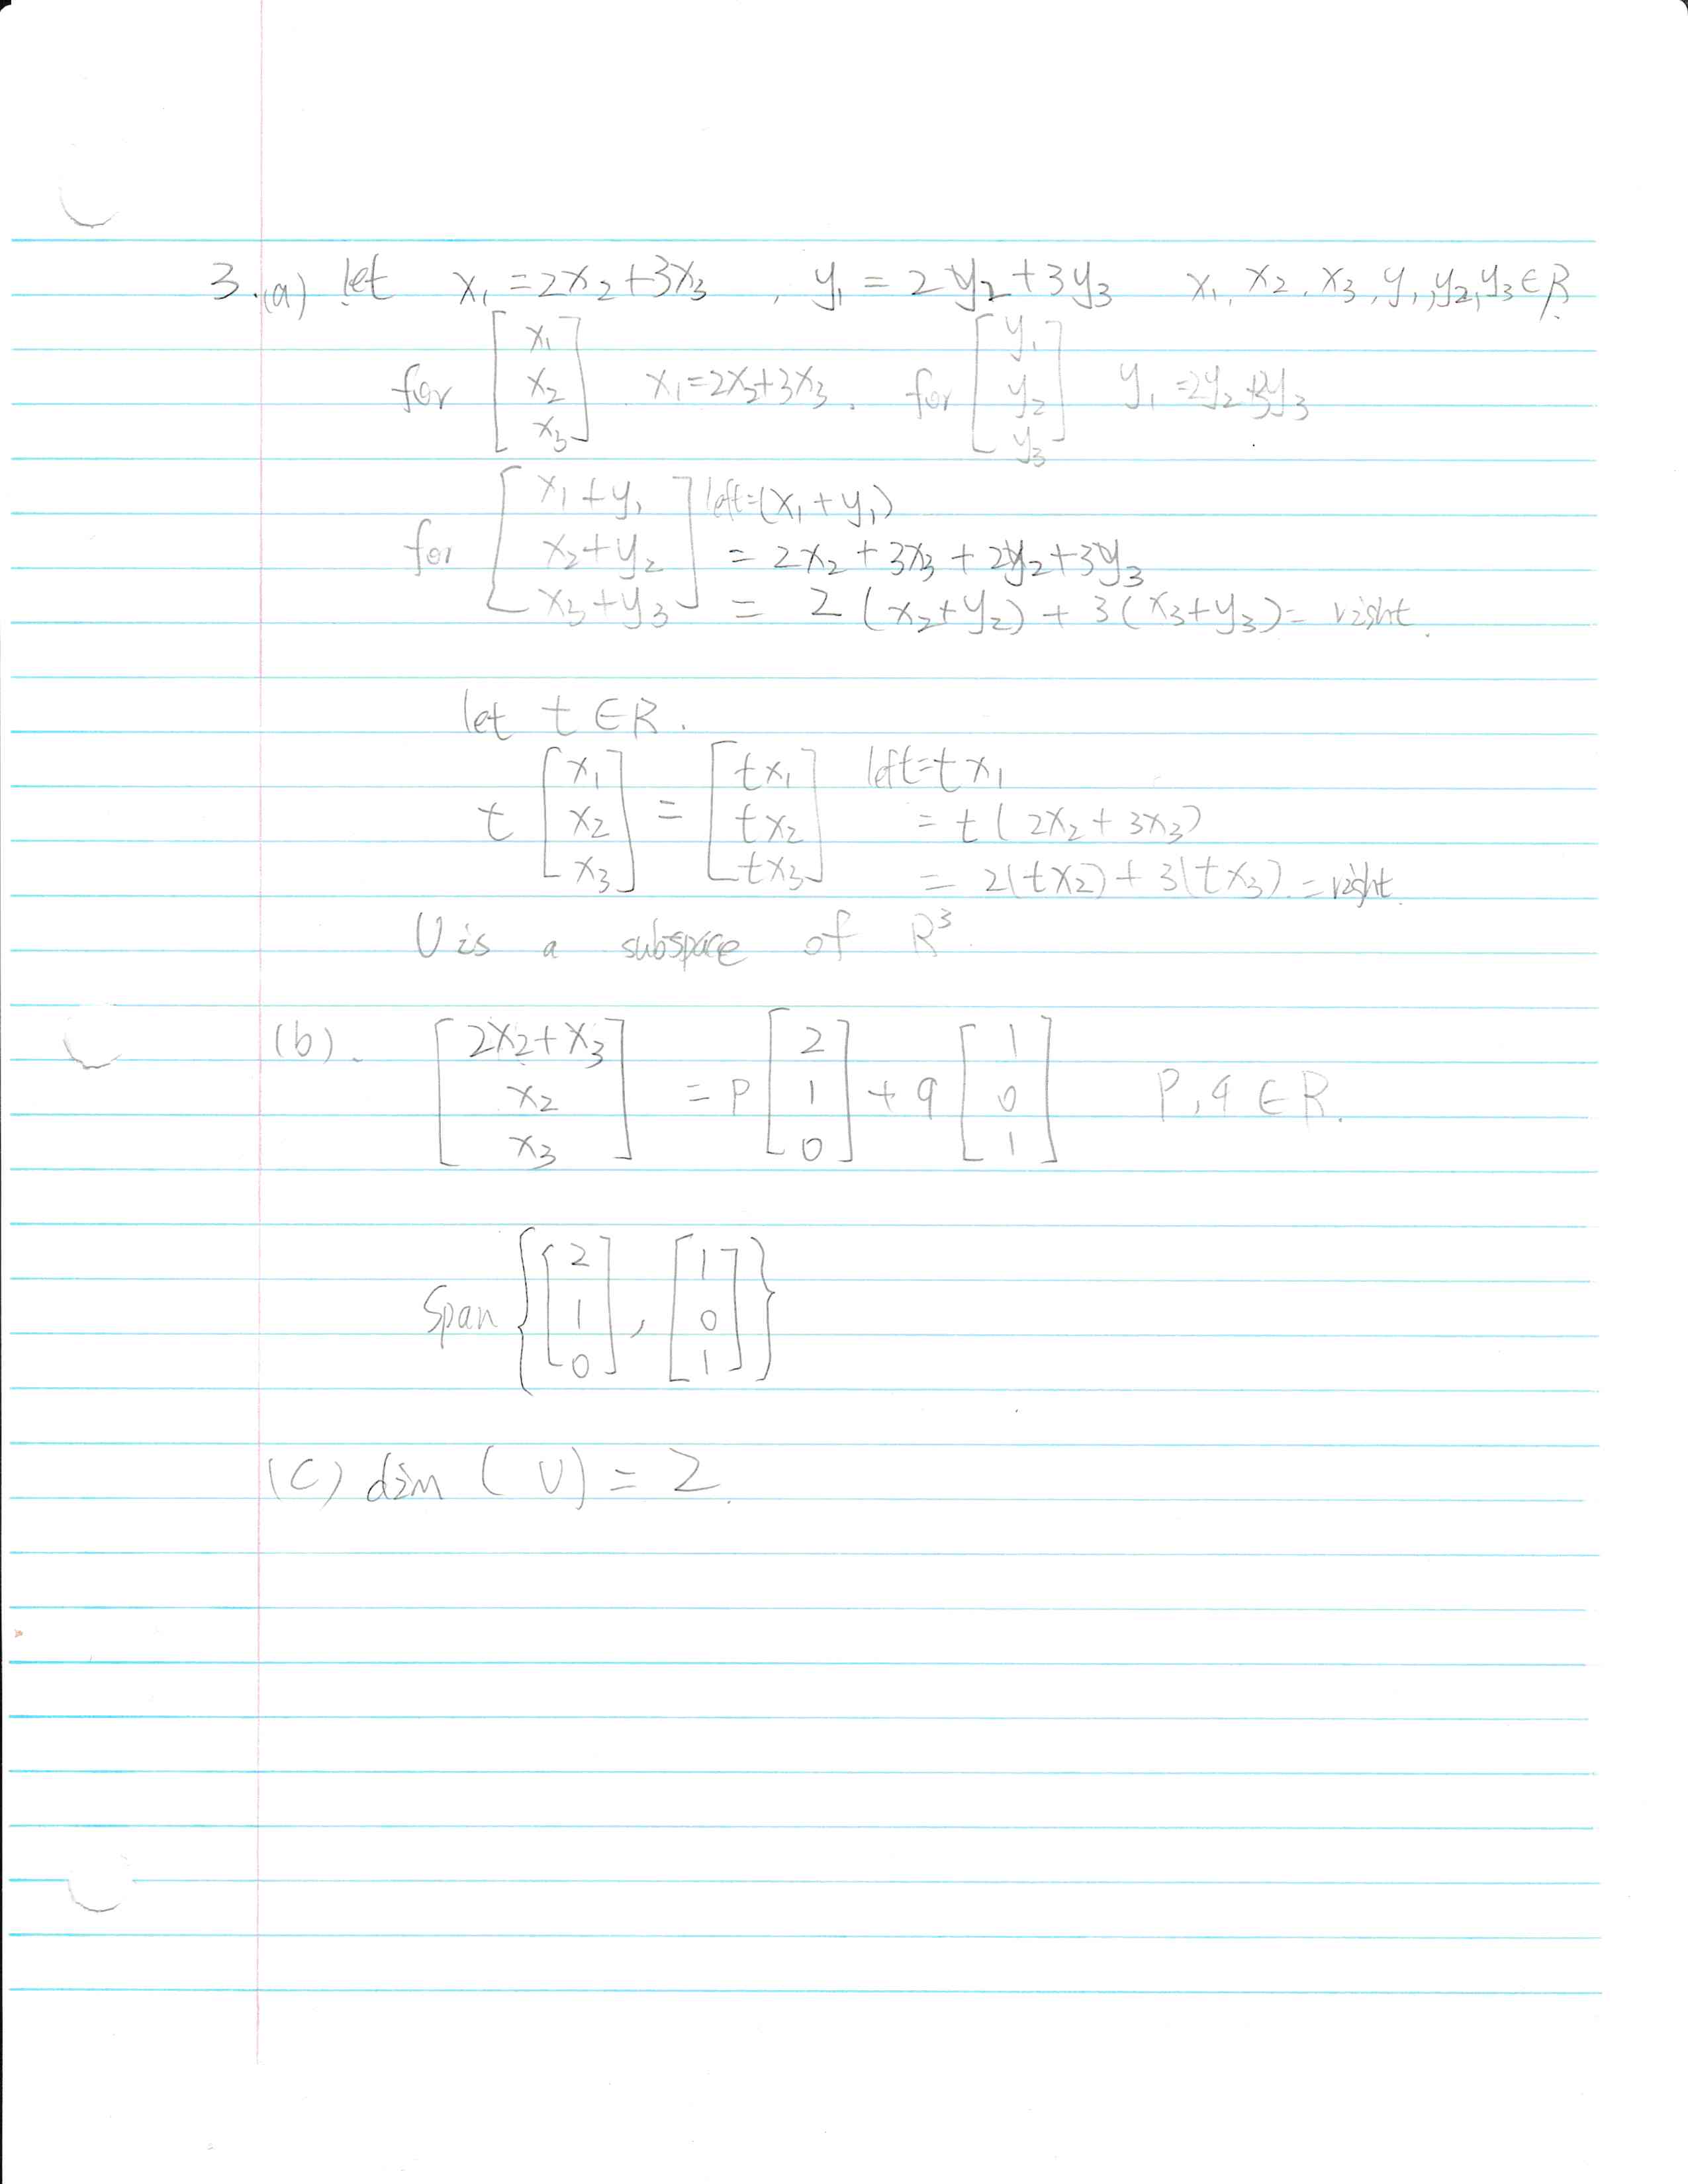 3.(a) let x₁ = 2x₂+3x₃ , y₁ = 2y₂+3y₃ x₁, x₂, x₃, y₁, y₂, y₃ ∈ R.
for [x₁ x₂ x₃] x₁=2x₂+3x₃. for [y₁ y₂ y₃] y₁=2y₂+3y₃
for [x₁+y₁ x₂+y₂ x₃+y₃] left=(x₁+y₁)
= 2x₂+3x₃+2y₂+3y₃
= 2(x₂+y₂)+3(x₃+y₃)= right.
let t ∈ R.
t [x₁ x₂ x₃] = [tx₁ tx₂ tx₃] left=tx₁
= t(2x₂+3x₃)
= 2(tx₂)+3(tx₃).=right.
U is a subspace of R³
(b). [2x₂+x₃ x₂ x₃] = p [2 1 0] + q [1 0 1] P, q ∈ R.
Span {[2 1 0], [1 0 1]}
(C) dim (U) = 2.